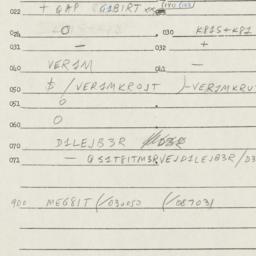 022 + GAP G1BIRT
024 O 030 K81S+K81
031 — 032 +
040 VER1M 041 —
050 $ /VER1MKROJT )-VER1MKRU
051 O
060 O
070 D1LEJB3R
071 — @S1T8ITM3RVEJD1LEJB3R/D3
900 MEG8IT (/030050 (/08703)